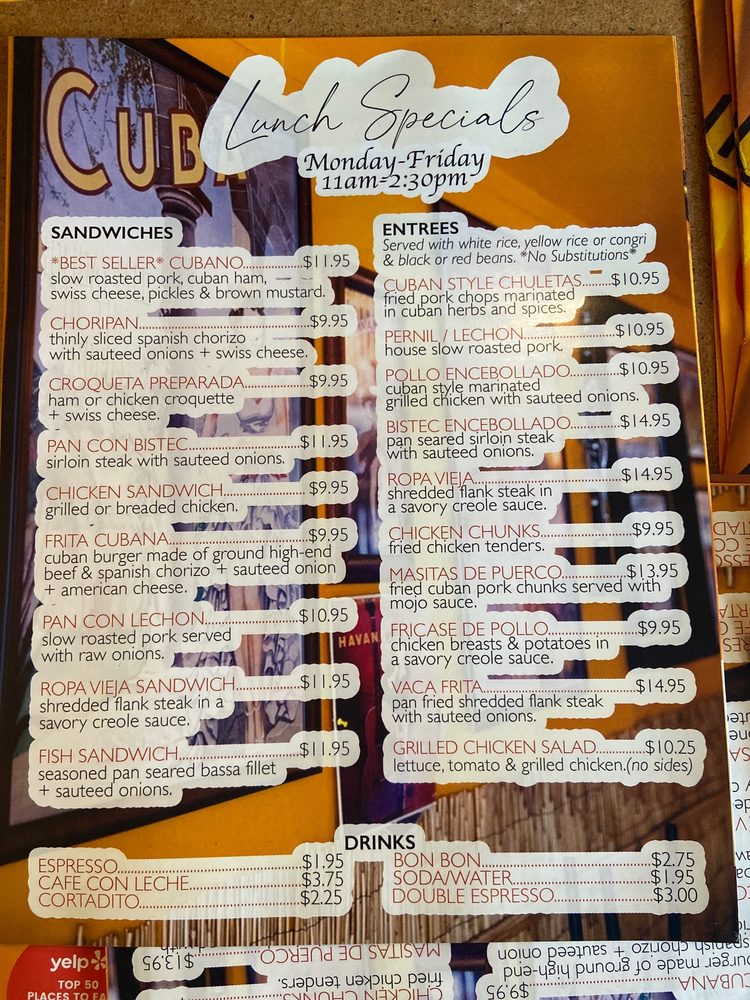 CUBA
Lunch Specials
Monday-Friday
11am-2:30pm
SANDWICHES
*BEST SELLER* CUBANO..................$11.95
slow roasted pork, cuban ham,
swiss cheese, pickles & brown mustard.
CHORIPAN..................$9.95
thinly sliced spanish chorizo
with sauteed onions + swiss cheese.
CROQUETA PREPARADA..................$9.95
ham or chicken croquette
+ swiss cheese.
PAN CON BISTEC..................$11.95
sirloin steak with sauteed onions.
CHICKEN SANDWICH..................$9.95
grilled or breaded chicken.
FRITA CUBANA..................$9.95
cuban burger made of ground high-end
beef & spanish chorizo + sauteed onion
+ american cheese.
PAN CON LECHON..................$10.95
slow roasted pork served
with raw onions.
ROPA VIEJA SANDWICH..................$11.95
shredded flank steak in a
savory creole sauce.
FISH SANDWICH..................$11.95
seasoned pan seared bassa fillet
+ sauteed onions.
ENTREES
Served with white rice, yellow rice or congri
& black or red beans. *No Substitutions*
CUBAN STYLE CHULETAS........$10.95
fried pork chops marinated
in cuban herbs and spices.
PERNIL / LECHON..................$10.95
house slow roasted pork.
POLLO ENCEBOLLADO..................$10.95
cuban style marinated
grilled chicken with sauteed onions.
BISTEC ENCEBOLLADO..................$14.95
pan seared sirloin steak
with sauteed onions.
ROPA VIEJA..................$14.95
shredded flank steak in
a savory creole sauce.
CHICKEN CHUNKS..................$9.95
fried chicken tenders.
MASITAS DE PUERCO..................$13.95
fried cuban pork chunks served with
mojo sauce.
FRICASE DE POLLO..................$9.95
chicken breasts & potatoes in
a savory creole sauce.
VACA FRITA..................$14.95
pan fried shredded flank steak
with sauteed onions.
GRILLED CHICKEN SALAD..................$10.25
lettuce, tomato & grilled chicken.(no sides)
HAVAN
DRINKS
ESPRESSO..................$1.95
CAFE CON LECHE..................$3.75
CORTADITO..................$2.25
BON BON..................$2.75
SODA/WATER..................$1.95
DOUBLE ESPRESSO..................$3.00
yelp
TOP 50
PLACES TO EA
MASITAS DE PUERCO..................$13.95
fried chicken tenders.
CHICKEN CHUNKS
spanish chorizo + sauteed onion
burger made of ground high-end
CUBANA..................$9.95